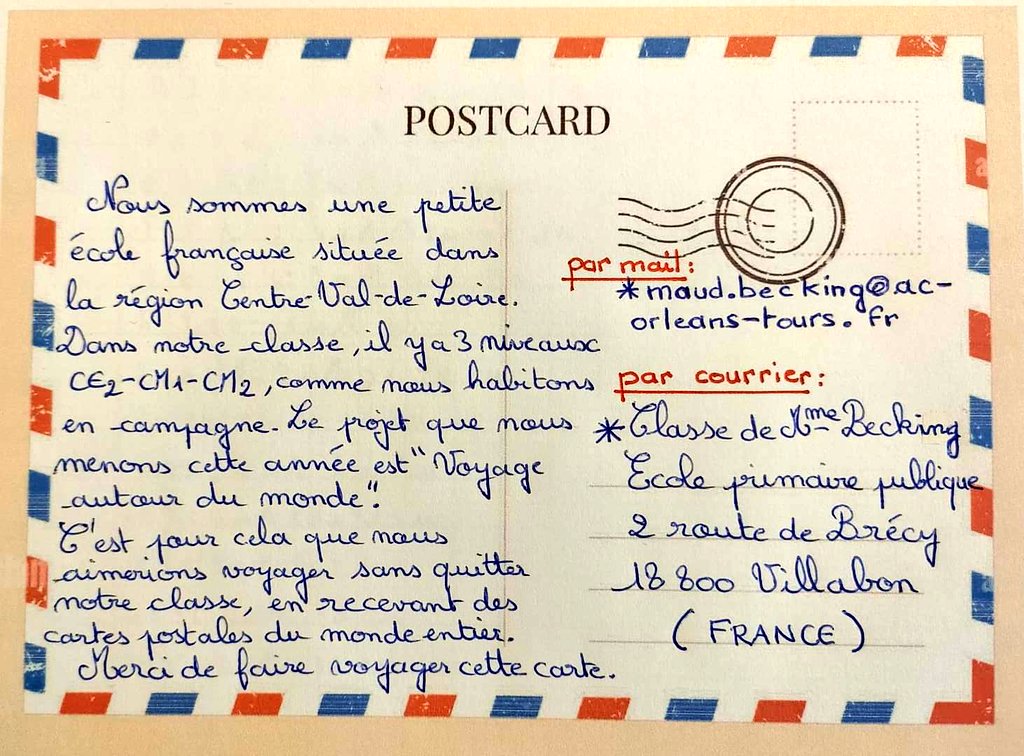 POSTCARD
Nous sommes une petite
école française située dans
la région Centre-Val-de-Loire.
Dans notre classe, il y a 3 niveaux
CE2-CM1-CM2, comme nous habitons
en campagne. Le projet que nous
menons cette année est "Voyage
autour du monde".
C'est pour cela que nous
aimerions voyager sans quitter
notre classe, en recevant des
cartes postales du monde entier.
Merci de faire voyager cette carte.
par mail:
*maud.becking@ac-
orleans-tours.fr
par courrier:
*Classe de Mme Becking
Ecole primaire publique
2 route de Brécy
18800 Villabon
(FRANCE)